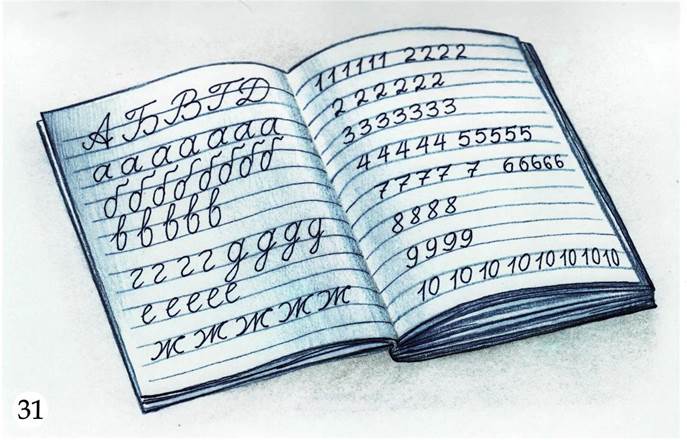 АБВГД
а а а а а а а
б б б б б б б
в в в в в
г г г г д д д д
е е е е е
ж ж ж ж ж ж
111111 2222
2 2 2 2 2 2
3333333
44444 55555
7777 7 66666
8888
9999
10 10 10 10 10 10 10 10
31